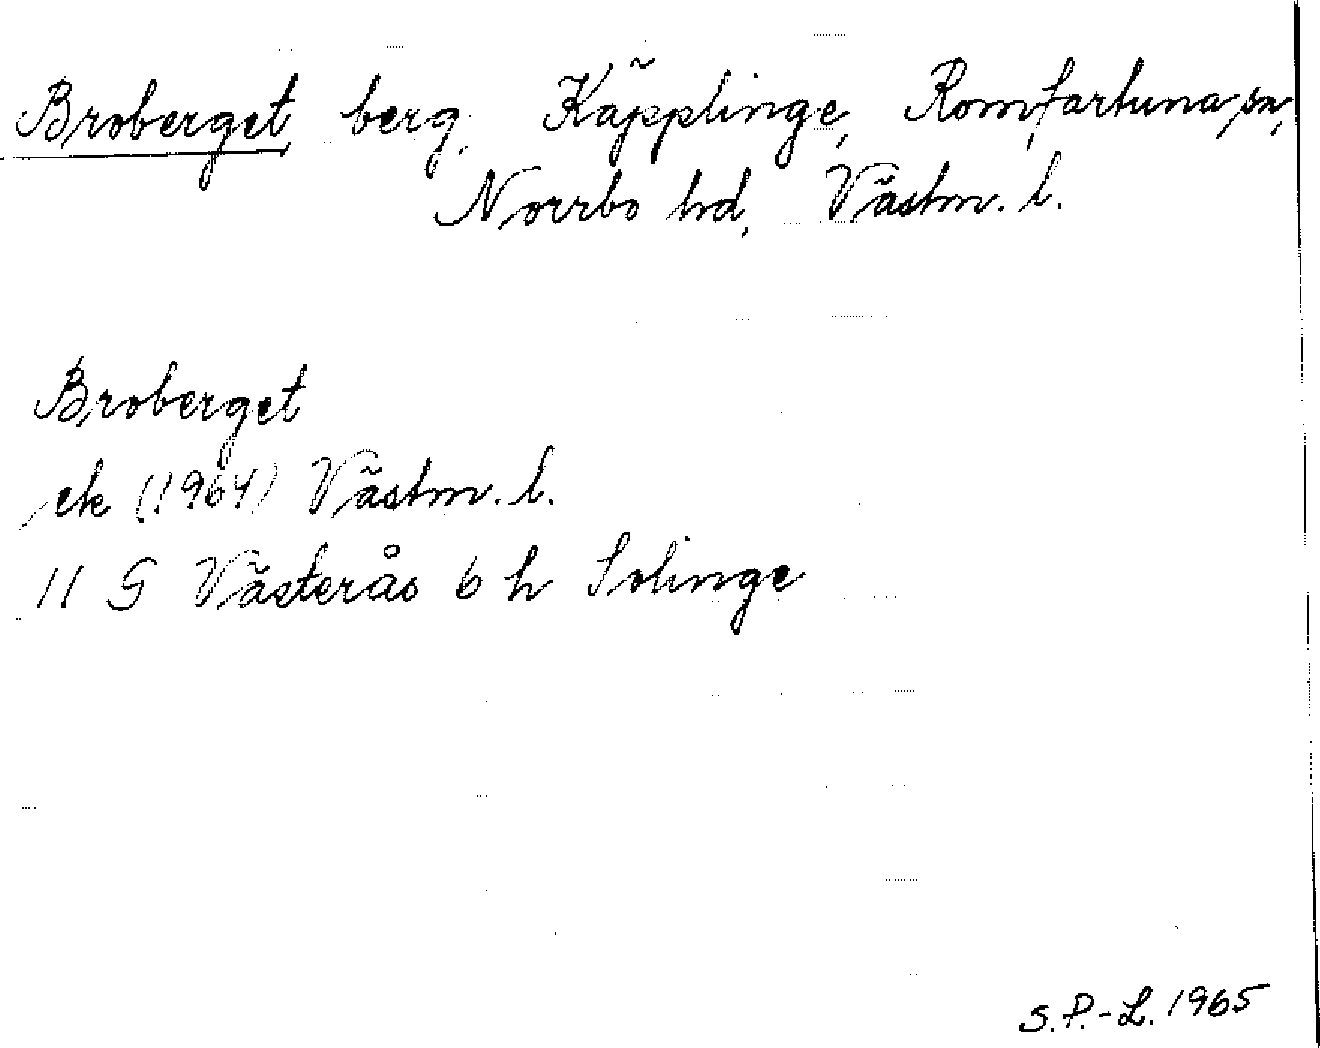 Broberget, berg, Käpplinge, Romfartuna sn,
Norrbo hd, Västm. l.
Broberget
ek (1964) Västm. l.
11 G Västerås 6 h Solinge
S.P.-L. 1965